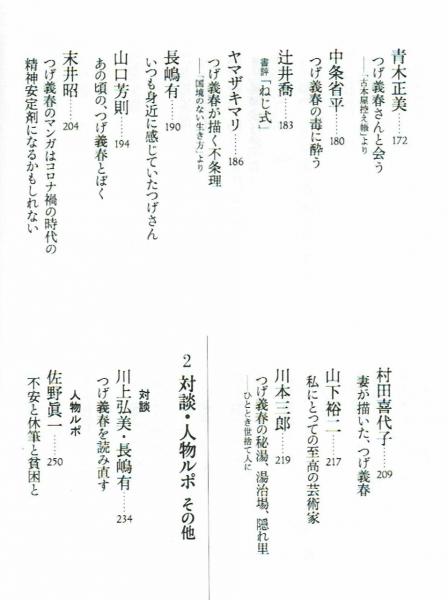 青木正美……172
つげ義春さんと会う
──「古本屋控え帳」より
中条省平……180
つげ義春の毒に酔う
辻井喬……183
書評『ねじ式』
ヤマザキマリ……186
つげ義春が描く不条理
──「国境のない生き方」より
長嶋有……190
いつも身近に感じていたつげさん
山口芳則……194
あの頃の、つげ義春とぼく
末井昭……204
つげ義春のマンガはコロナ禍の時代の
精神安定剤になるかもしれない
村田喜代子……209
妻が描いた、つげ義春
山下裕二……217
私にとっての至高の芸術家
川本三郎……219
つげ義春の秘湯、湯治場、隠れ里
──ひととき世捨て人に
2 対談・人物ルポ その他
対談
川上弘美・長嶋有……234
つげ義春を読み直す
人物ルポ
佐野眞一……250
不安と休筆と貧困と